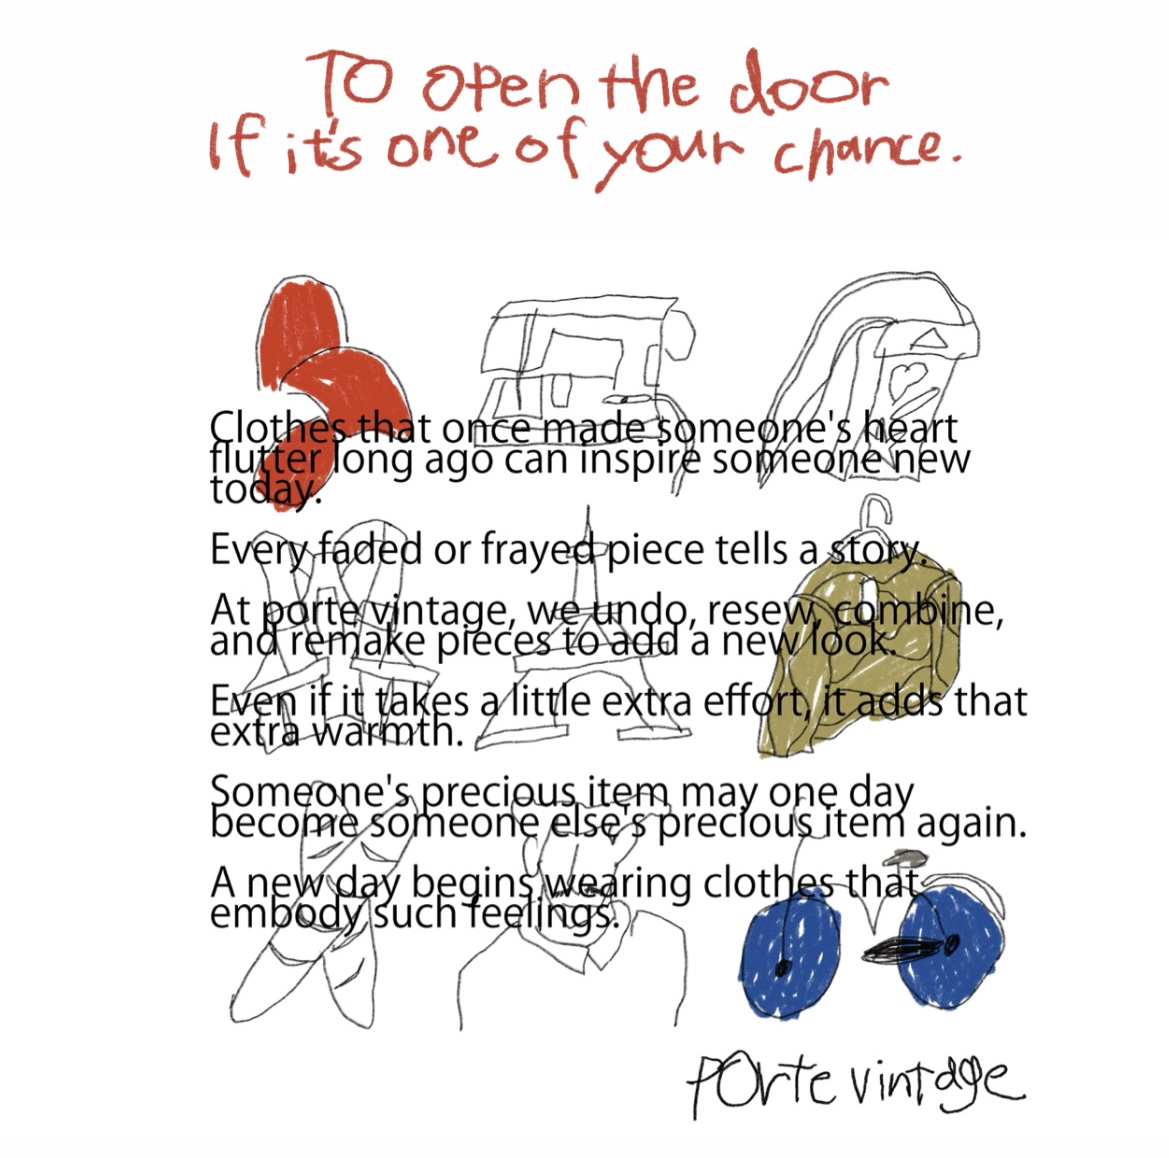 To open the door
If it's one of your chance.
Clothes that once made someone's heart
flutter long ago can inspire someone new
today.
Every faded or frayed piece tells a story.
At porte vintage, we undo, resew, combine,
and remake pieces to add a new look.
Even if it takes a little extra effort, it adds that
extra warmth.
Someone's precious item may one day
become someone else's precious item again.
A new day begins wearing clothes that
embody such feelings.
porte vintage